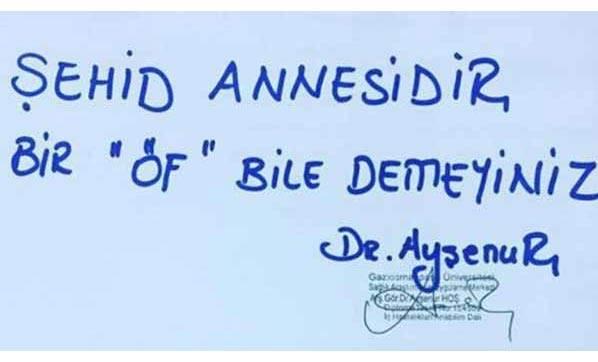 ŞEHİD ANNESİDİR
BİR "ÖF" BİLE DEMEYİNİZ
Dr. Ayşenur
Gaziosmanpaşa Üniversitesi
Sağlık Araştırma Uygulama Merkezi
Arş.Gör.Dr.Ayşenur HOŞ
Diploma Tescil No:
İç Hastalıkları Anabilim Dalı